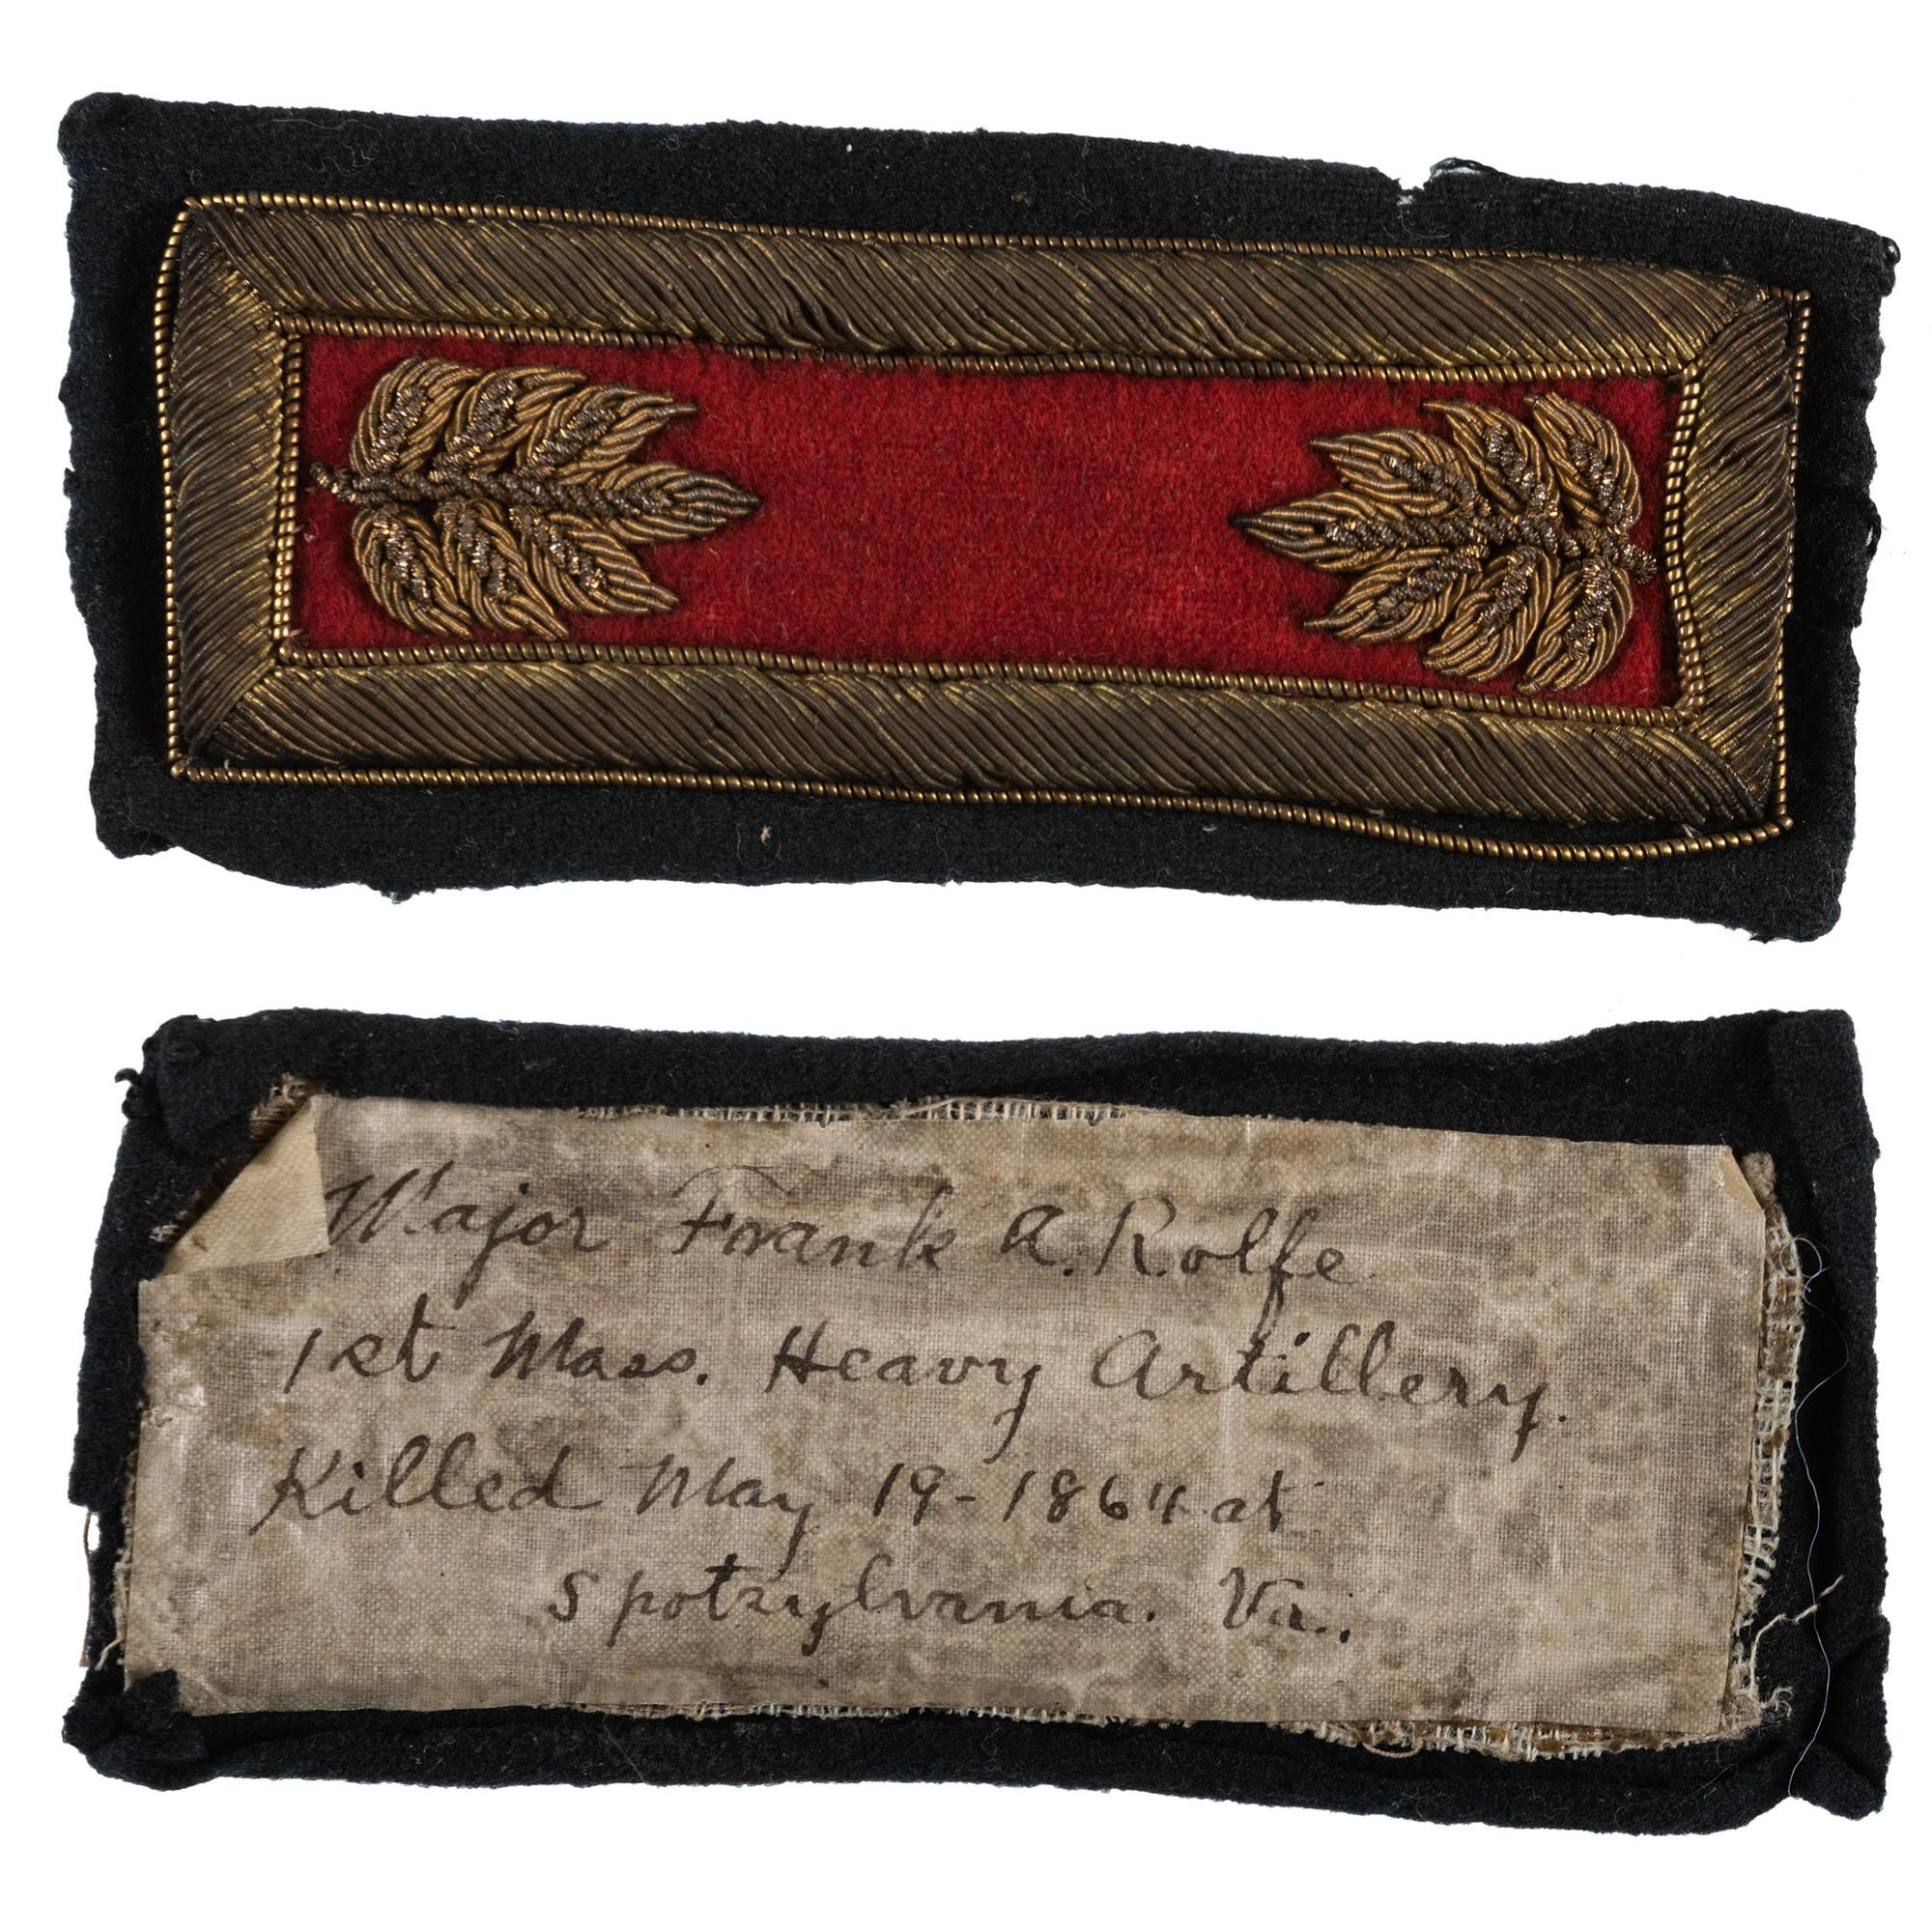 Major Frank A. Rolfe
1st Mass. Heavy Artillery.
Killed May 19-1864 at
Spotzylvania. Va.